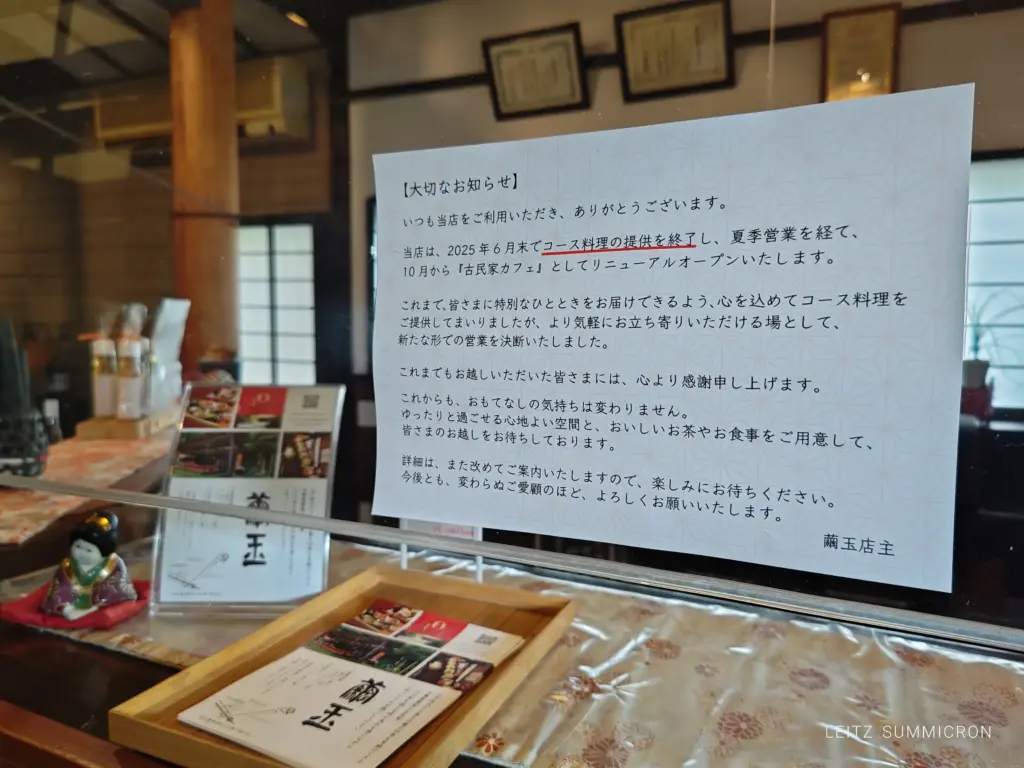 【大切なお知らせ】
いつも当店をご利用いただき、ありがとうございます。
当店は、2025年6月末でコース料理の提供を終了し、夏季営業を経て、
10月から『古民家カフェ』としてリニューアルオープンいたします。
これまで、皆さまに特別なひとときをお届けできるよう、心を込めてコース料理を
ご提供してまいりましたが、より気軽にお立ち寄りいただける場として、
新たな形での営業を決断いたしました。
これまでもお越しいただいた皆さまには、心より感謝申し上げます。
これからも、おもてなしの気持ちは変わりません。
ゆったりと過ごせる心地よい空間と、おいしいお茶やお食事をご用意して、
皆さまのお越しをお待ちしております。
詳細は、また改めてご案内いたしますので、楽しみにお待ちください。
今後とも、変わらぬご愛顧のほど、よろしくお願いいたします。
繭玉店主
繭玉
繭玉
LEITZ SUMMICRON